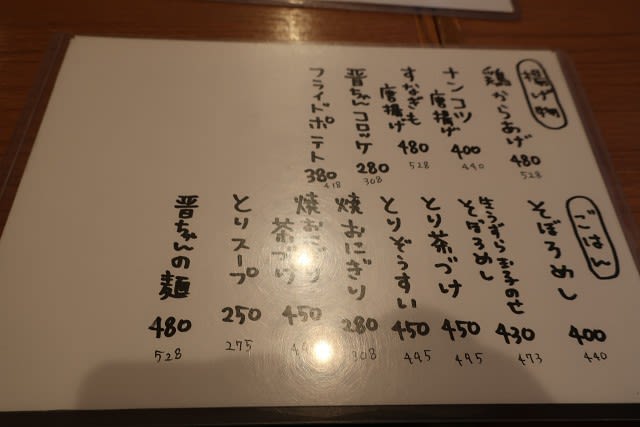 揚げ物
鶏からあげ
480
528
ナンコツ
唐揚げ
400
440
すなぎも
唐揚げ
480
528
晋ちゃんコロッケ
280
308
フライドポテト
380
418
ごはん
そぼろめし
400
440
生うずら玉子のせ
そぼろめし
430
473
とり茶づけ
450
495
とりぞうすい
450
495
焼おにぎり
280
308
焼おにぎり
茶づけ
450
とりスープ
250
275
晋ちゃんの麺
480
528